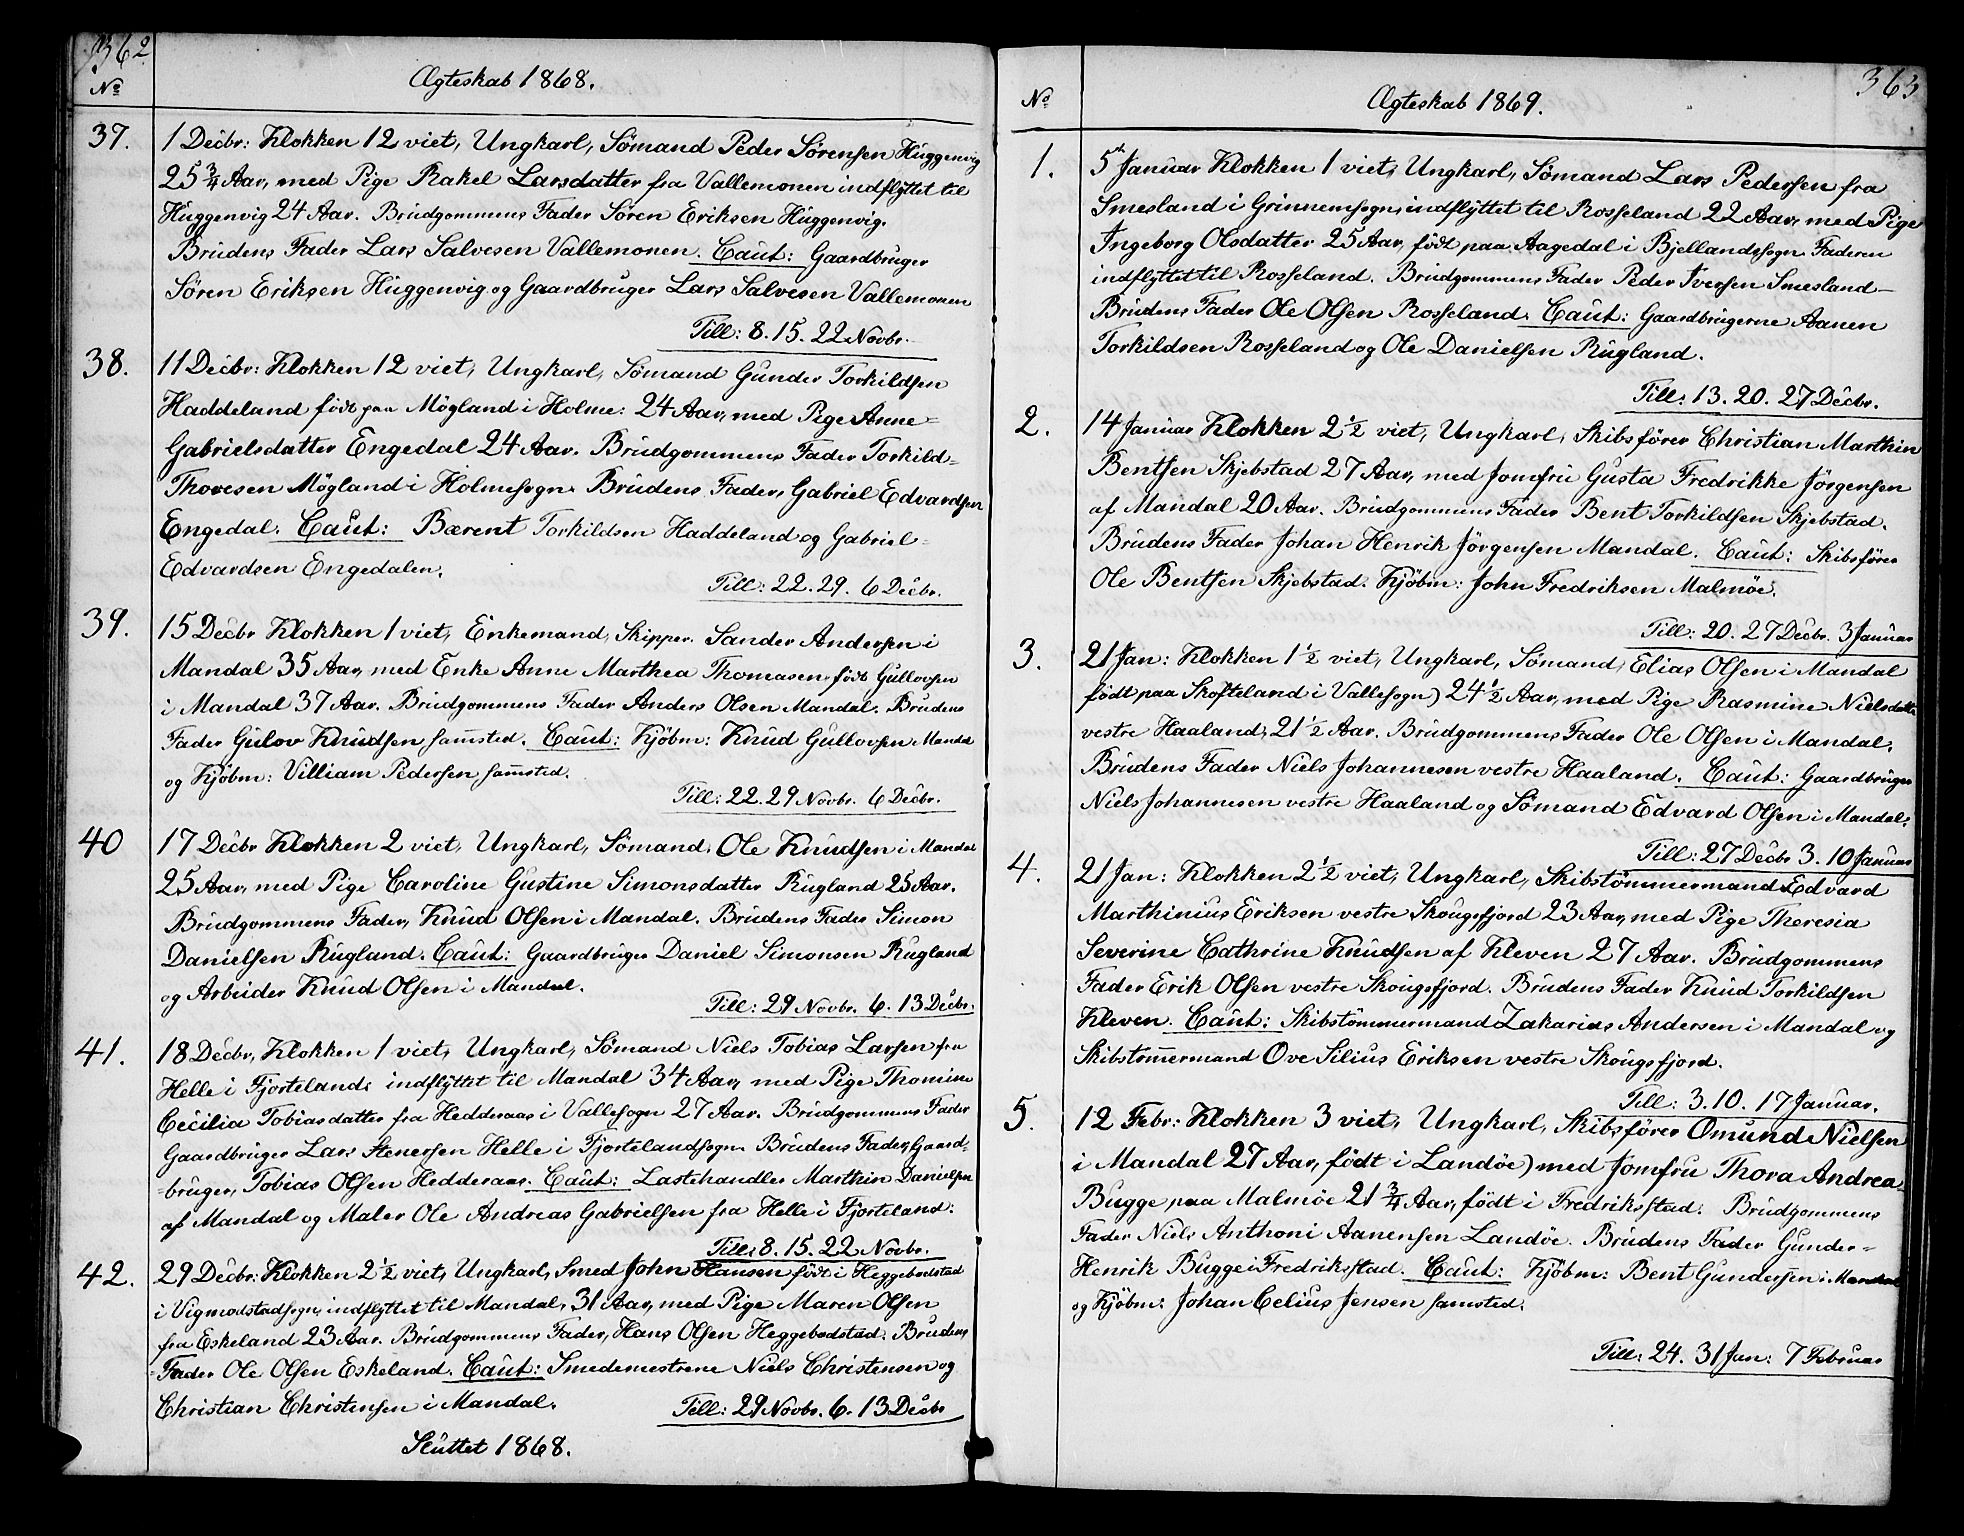 362
No
Ægteskab 1868.
37.
1 Decbr: Klokken 12 viet, Ungkarl, Sömand Peder Sörensen Huggenvig
25 3/4 Aar, med Pige Rakel Larsdatter fra Vallemonen indflyttet til
Huggenvig 24 Aar. Brudgommens Fader Sören Eriksen Huggenvig.
Brudens Fader Lars Salvesen Vallemonen. Caut: Gaardbruger
Sören Eriksen Huggenvig og Gaardbruger Lars Salvesen Vallemonen
Till: 8. 15. 22 Novbr.
38.
11 Decbr: Klokken 12 viet, Ungkarl, Sömand Gunder Torkildsen
Haddeland födt paa Mögland i Holme: 24 Aar, med Pige Anne
Gabrielsdatter Engedal 24 Aar. Brudgommens Fader Torkild-
Thovesen Mögland i Holmesogn. Brudens Fader, Gabriel Edvardsen
Engedal. Caut: Bærent Torkildsen Haddeland og Gabriel
Edvardsen Engedalen.
Till: 22. 29. 6 Decbr.
39.
15 Decbr Klokken 1 viet, Enkemand, Skipper. Sander Andersen i
Mandal 35 Aar, med Enke Anne Marthea Thomasen födt Gullovsen
i Mandal 37 Aar. Brudgommens Fader Anders Olsen Mandal. Brudens
Fader Gulov Knudsen samsted. Caut: Kjöbm: Knud Gullovsen Mandal
og Kjöbm: Villiam Pedersen samsted.
Till: 22. 29 Novbr. 6 Decbr.
40
17 Decbr Klokken 2 viet, Ungkarl, Sömand. Ole Knudsen i Mandal
25 Aar, med Pige Caroline Gustine Simonsdatter Rugland 25 Aar.
Brudgommens Fader, Knud Olsen i Mandal. Brudens Fader Simon
Danielsen Rugland. Caut: Gaardbruger Daniel Simonsen Rugland
og Arbeider Knud Olsen i Mandal.
Till: 29 Novbr. 6. 13 Decbr.
41.
18 Decbr, Klokken 1 viet, Ungkarl, Sömand Niels Tobias Larsen fra
Helle i Fjorteland: indflyttet til Mandal 34 Aar, med Pige Thomine
Cecilia Tobiasdatter fra Hedderaas i Vallesogn 27 Aar. Brudgommens Fader
Gaardbruger Lars Stenersen Helle i Fjortelandsogn. Brudens Fader, Gaard-
bruger, Tobias Olsen Hedderaas. Caut: Lastehandler Marthin Danielsen
af Mandal og Maler Ole Andreas Gabrielsen fra Helle i Fjorteland.
Till: 8. 15. 22 Novbr.
42.
29 Decbr: Klokken 2 1/2 viet, Ungkarl, Smed John Hansen födt i Heggebodstad
i Vigmodstadsogn, indflyttet til Mandal, 31 Aar, med Pige Maren Olsen
fra Eskeland 23 Aar. Brudgommens Fader, Hans Olsen Heggebodstad. Brudens
Fader Ole Olsen Eskeland. Caut: Smedemestrene Niels Christensen og
Christian Christensen i Mandal.
Till: 29 Novbr. 6. 13 Decbr
Sluttet 1868.
363
No
Ægteskab 1869.
1.
5t Januar Klokken 1 viet, Ungkarl, Sömand Lars Pedersen fra
Smesland i Grinnemsogn, indflyttet til Rosseland 22 Aar, med Pige
Ingeborg Olsdatter 25 Aar, födt paa Aagedal i Bjellandsogn. Faderen
indflyttet til Rosseland. Brudgommens Fader Peder Iversen Smesland
Brudens Fader Ole Olsen Rosseland. Caut: Gaardbrugerne Aanen
Torkildsen Rosseland og Ole Danielsen Rugland.
Till: 13. 20. 27 Decbr.
2.
14 Januar Klokken 2 1/2 viet, Ungkarl, Skibsförer Christian Marthin
Bentsen Skjebstad 27 Aar, med Jomfru Gusta Fredrikke Jörgensen
af Mandal 20 Aar. Brudgommens Fader Bent Torkildsen Skjebstad.
Brudens Fader Johan Henrik Jörgensen Mandal. Caut: Skibsförer
Ole Bentsen Skjebstad. Kjöbm: John Fredriksen Malmöe.
Till: 20. 27 Decbr. 3 Januar
3.
21 Jan: Klokken 1 1/2 viet, Ungkarl, Sömand, Elias Olsen i Mandal
födt paa Skofteland i Vallesogn) 24 1/2 Aar, med Pige Rasmine Nielsdatter
vestre Haaland, 21 1/2 Aar. Brudgommens Fader Ole Olsen i Mandal.
Brudens Fader Niels Johannesen vestre Haaland. Caut: Gaardbruger
Niels Johannesen vestre Haaland og Sömand Edvard Olsen i Mandal.
Till: 27 Decbr 3. 10 Januar
4.
21 Jan: Klokken 2 1/2 viet, Ungkarl, Skibstömmermand Edvard
Marthinius Eriksen vestre Skougsfjord 23 Aar, med Pige Theresia
Severine Cathrine Knudsen af Kleven 27 Aar. Brudgommens
Fader Erik Olsen vestre Skougsfjord. Brudens Fader Knud Torkildsen
Kleven. Caut: Skibstömmermand Zakarias Andersen i Mandal og
Skibstömmermand Ove Silius Eriksen vestre Skougsfjord.
Till: 3. 10. 17 Januar.
5.
12 Febr: Klokken 3 viet, Ungkarl, Skibsförer Omund Nielsen
i Mandal 27 Aar, födt i Landöe) med Jomfru Thora Andrea
Bugge, paa Malmöe 21 3/4 Aar, födt i Fredriksstad. Brudgommens
Fader Niels Anthoni Aanensen Landöe. Brudens Fader Gunder-
Henrik Bugge i Fredriksstad. Caut: Kjöbm: Bent Gundersen i Mandal
og Kjöbm: Johan Celius Jensen samsted.
Till: 24. 31 Jan: 7 Februar